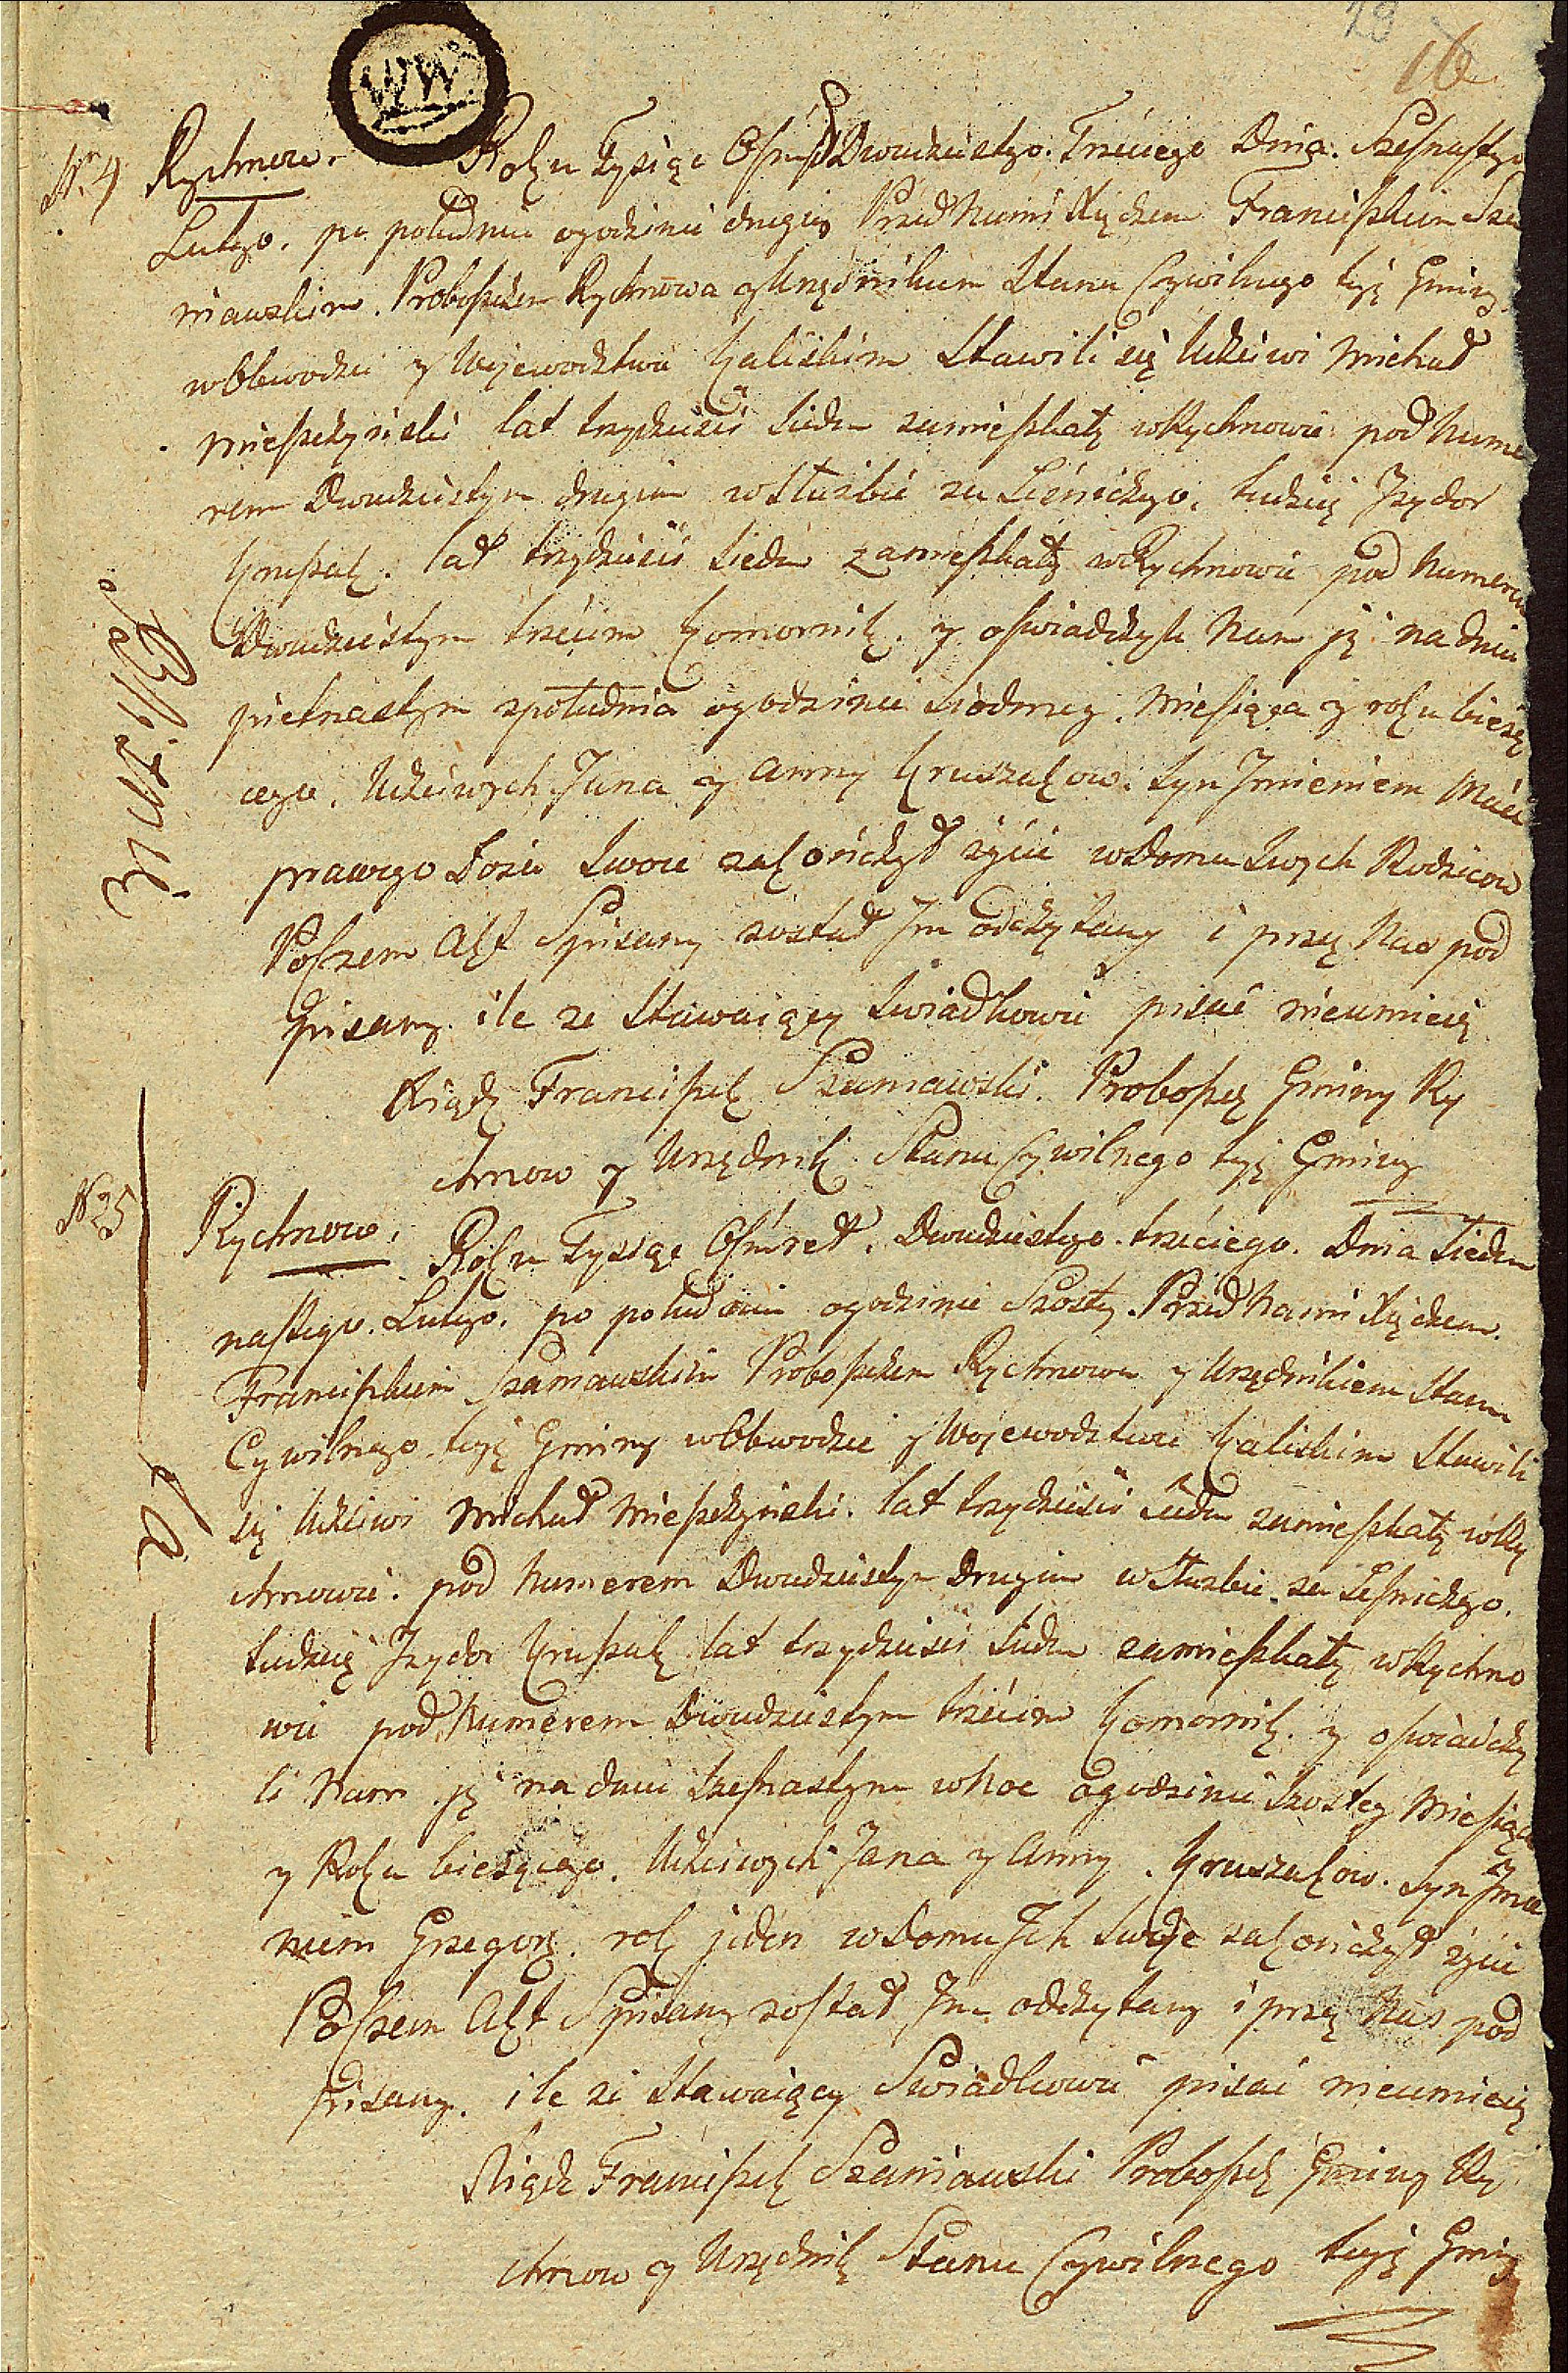 19
16
WW
Nr. 4 Rychnow. Roku Tysiąc Osmset Dwudziestego Trzeciego Dnia Szesnastego
Lutego. po południu ogodzinie drugiey Przed Nami Xiędzem Franciszkiem Sza
niawskim. Proboszczem Rychnowa y Urzędnikiem Stanu Cywilnego teyże Gminy
wObwodzie y Wojewodztwie Kaliskim Stawili się Uczciwi Michał
Mieszczyński lat trzydzieści siedm zamieszkały wRychnowie pod Nume
rem Dwudziestym drugim wSłużbie za Leśniczego, tudzież Jzydor
Kruszak. lat trzydzieści siedm zamieszkały wRychnowie pod Numerem
Dwudziestym trzecim Komornik. y oświadczyli Nam iż na dniu
pietnastym zpołudnia ogodzinie siodmey. Miesiąca y roku bieżą
cego. Uczciwych Jana y Anny Kruszakow. Syn Jmieniem
prawego Łoża swoie zakończył życie wDomu Swych Rodzicow
Poczem Akt Spisany został Jm odczytany i przez Nas pod
pisany. ile że Stawaiący Swiadkowie pisać nieumieią
Xiądz Franciszek Szaniawski. Proboszcz Gminy Ry
chnow y Urzędnik Stanu Cywilnego teyże Gminy
N 5 Rychnow. Roku Tysiąc Osmset. Dwudziestego trzeciego. Dnia Siedm
nastego. Lutego. po południu ogodzinie Szostey. Przed Nami Xiędzem.
Franciszkiem Szaniawskim Proboszczem Rychnowa y Urzędnikiem Stanu
Cywilnego teyże Gminy wObwodzie y Wojewodztwie Kaliskim Stawili
się Uczciwi Michał Mieszczyński. lat trzydzieści siedm zamieszkały wRy
chnowie. pod Numerem Dwudziestym Drugim wSłużbie za Leśniczego.
tudzież Jzydor Kruszak lat trzydzieści siedm zamieszkały wRychno
wie pod Numerem Dwudziestym trzecim Komornik. y oświadczy
li Nam iż na dniu szesnastym wNoc ogodzinie szostey Miesiąca
y Roku bieżącego. Uczciwych Jana y Anny. Kruszakow. Syn Jmie
niem Grzegorz. rok jeden wDomu Jch swoje zakończył życie
Poczem Akt Spisany został Jm odczytany i przez Nas pod
pisany. ile że Stawaiący Swiadkowie pisać nieumieią
Xiądz Franciszek Szaniawski Proboszcz Gminy Ry
chnow y Urzędnik Stanu Cywilnego teyże Gminy